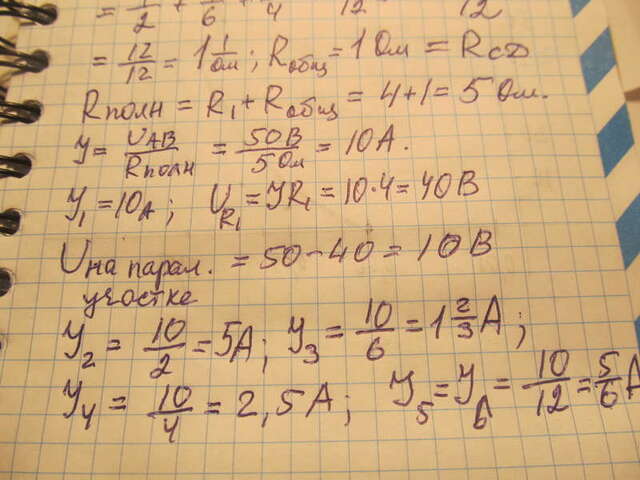 = 1/2 + 1/6 + 1/4 12 12
= 12/12 = 1 1/Ом ; Rобщ = 1 Ом = Rсд
Rполн = R1 + Rобщ = 4+1 = 5 Ом.
У = UАВ/Rполн = 50В/5Ом = 10А.
У1 = 10А ; UR1 = УR1 = 10·4 = 40В
Uна парал. = 50-40 = 10В
участке
У2 = 10/2 = 5А; У3 = 10/6 = 1 2/3 А ;
У4 = 10/4 = 2,5А ; У5 = У6 = 10/12 = 5/6 А